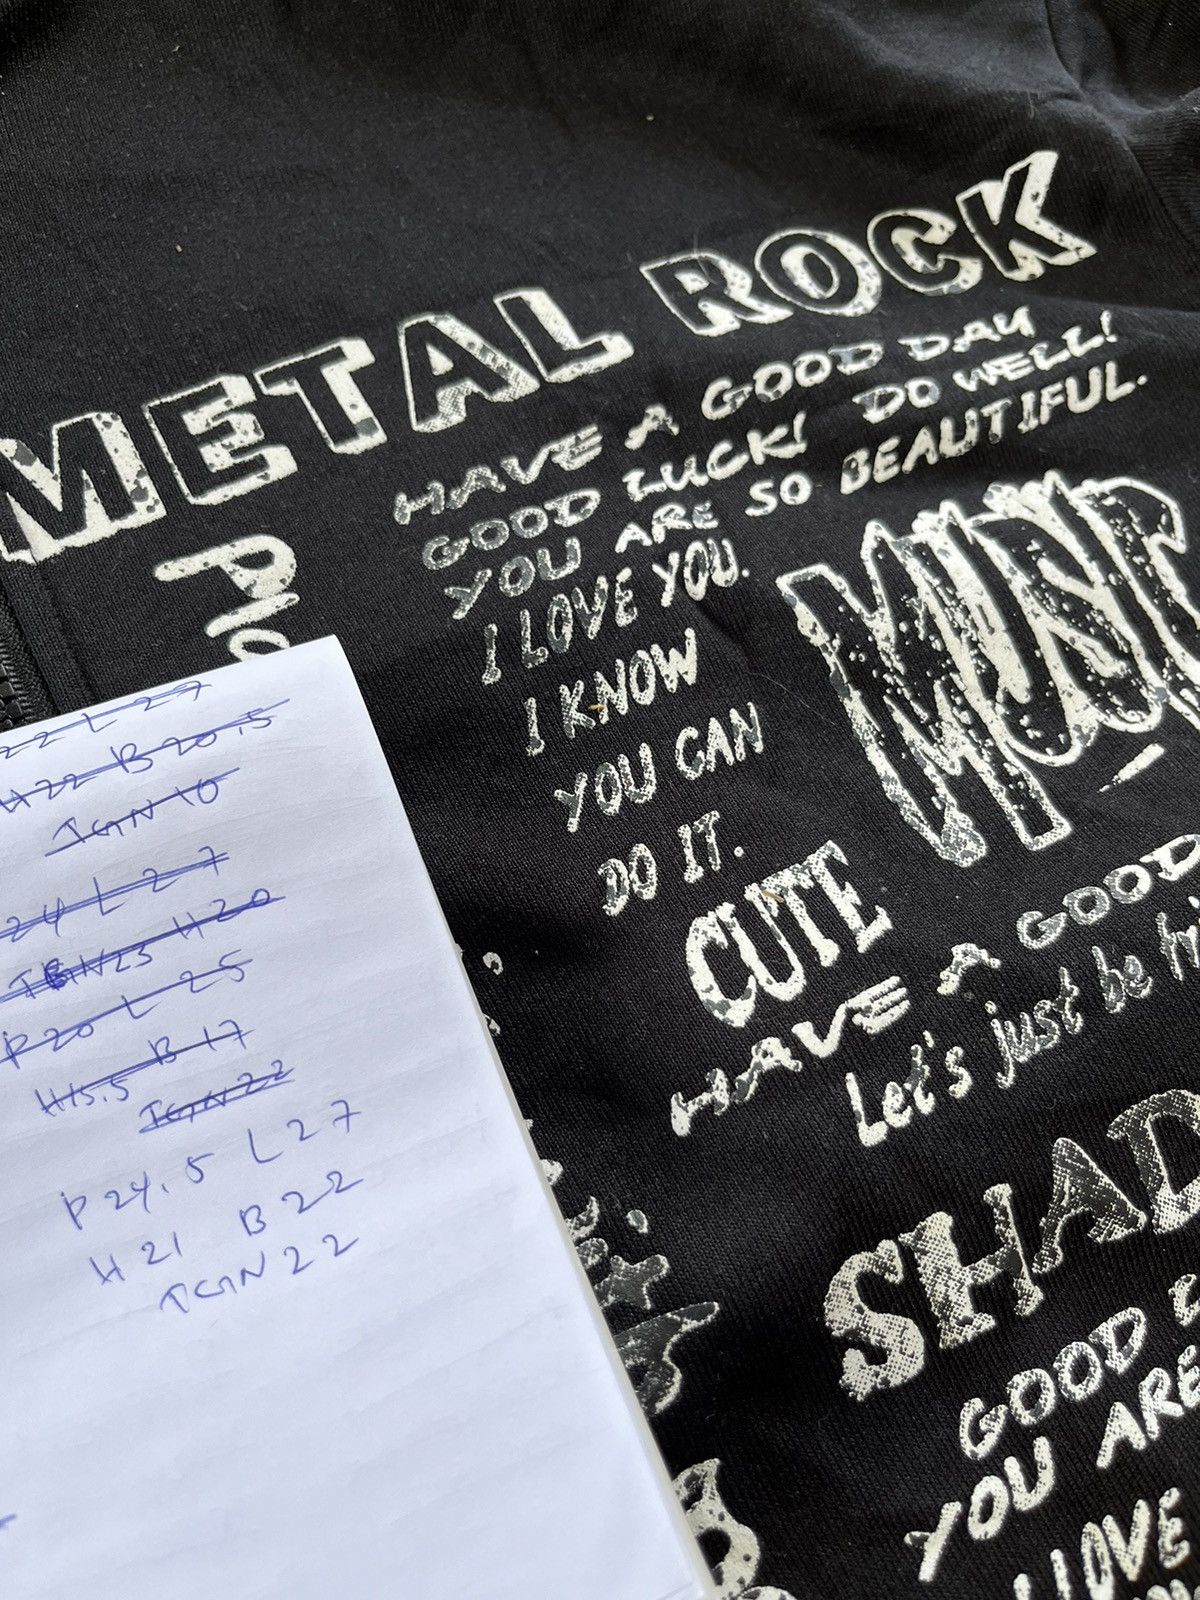 METAL ROCK
HAVE A GOOD DAY
GOOD LUCK! DO WELL!
YOU ARE SO BEAUTIFUL.
I LOVE YOU.
I KNOW
YOU CAN
DO IT.
MUSIC
CUTE
HAVE A GOOD
Let's just be
SHAD
GOOD
YOU ARE
I LOVE
22 L 27
H22 B 20.5
TGN 10
24 L 27
TGN23 H20
P20 L 25
H15.5 B 17
TGN22
P 24.5 L 27
H 21 B 22
TGN 22